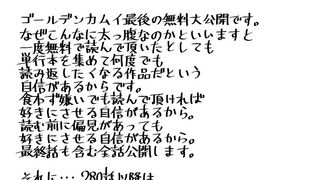 ゴールデンカムイ最後の無料大公開です。
なぜこんなに太っ腹なのかといいますと
一度無料で読んで頂いたとしても
単行本を集めて何度でも
読み返したくなる作品だという
自信があるからです。
食わず嫌いでも読んで頂ければ
好きにさせる自信があるから。
読む前に偏見があっても
好きにさせる自信があるから。
最終話も含む全話公開します。
それに…280話以降は